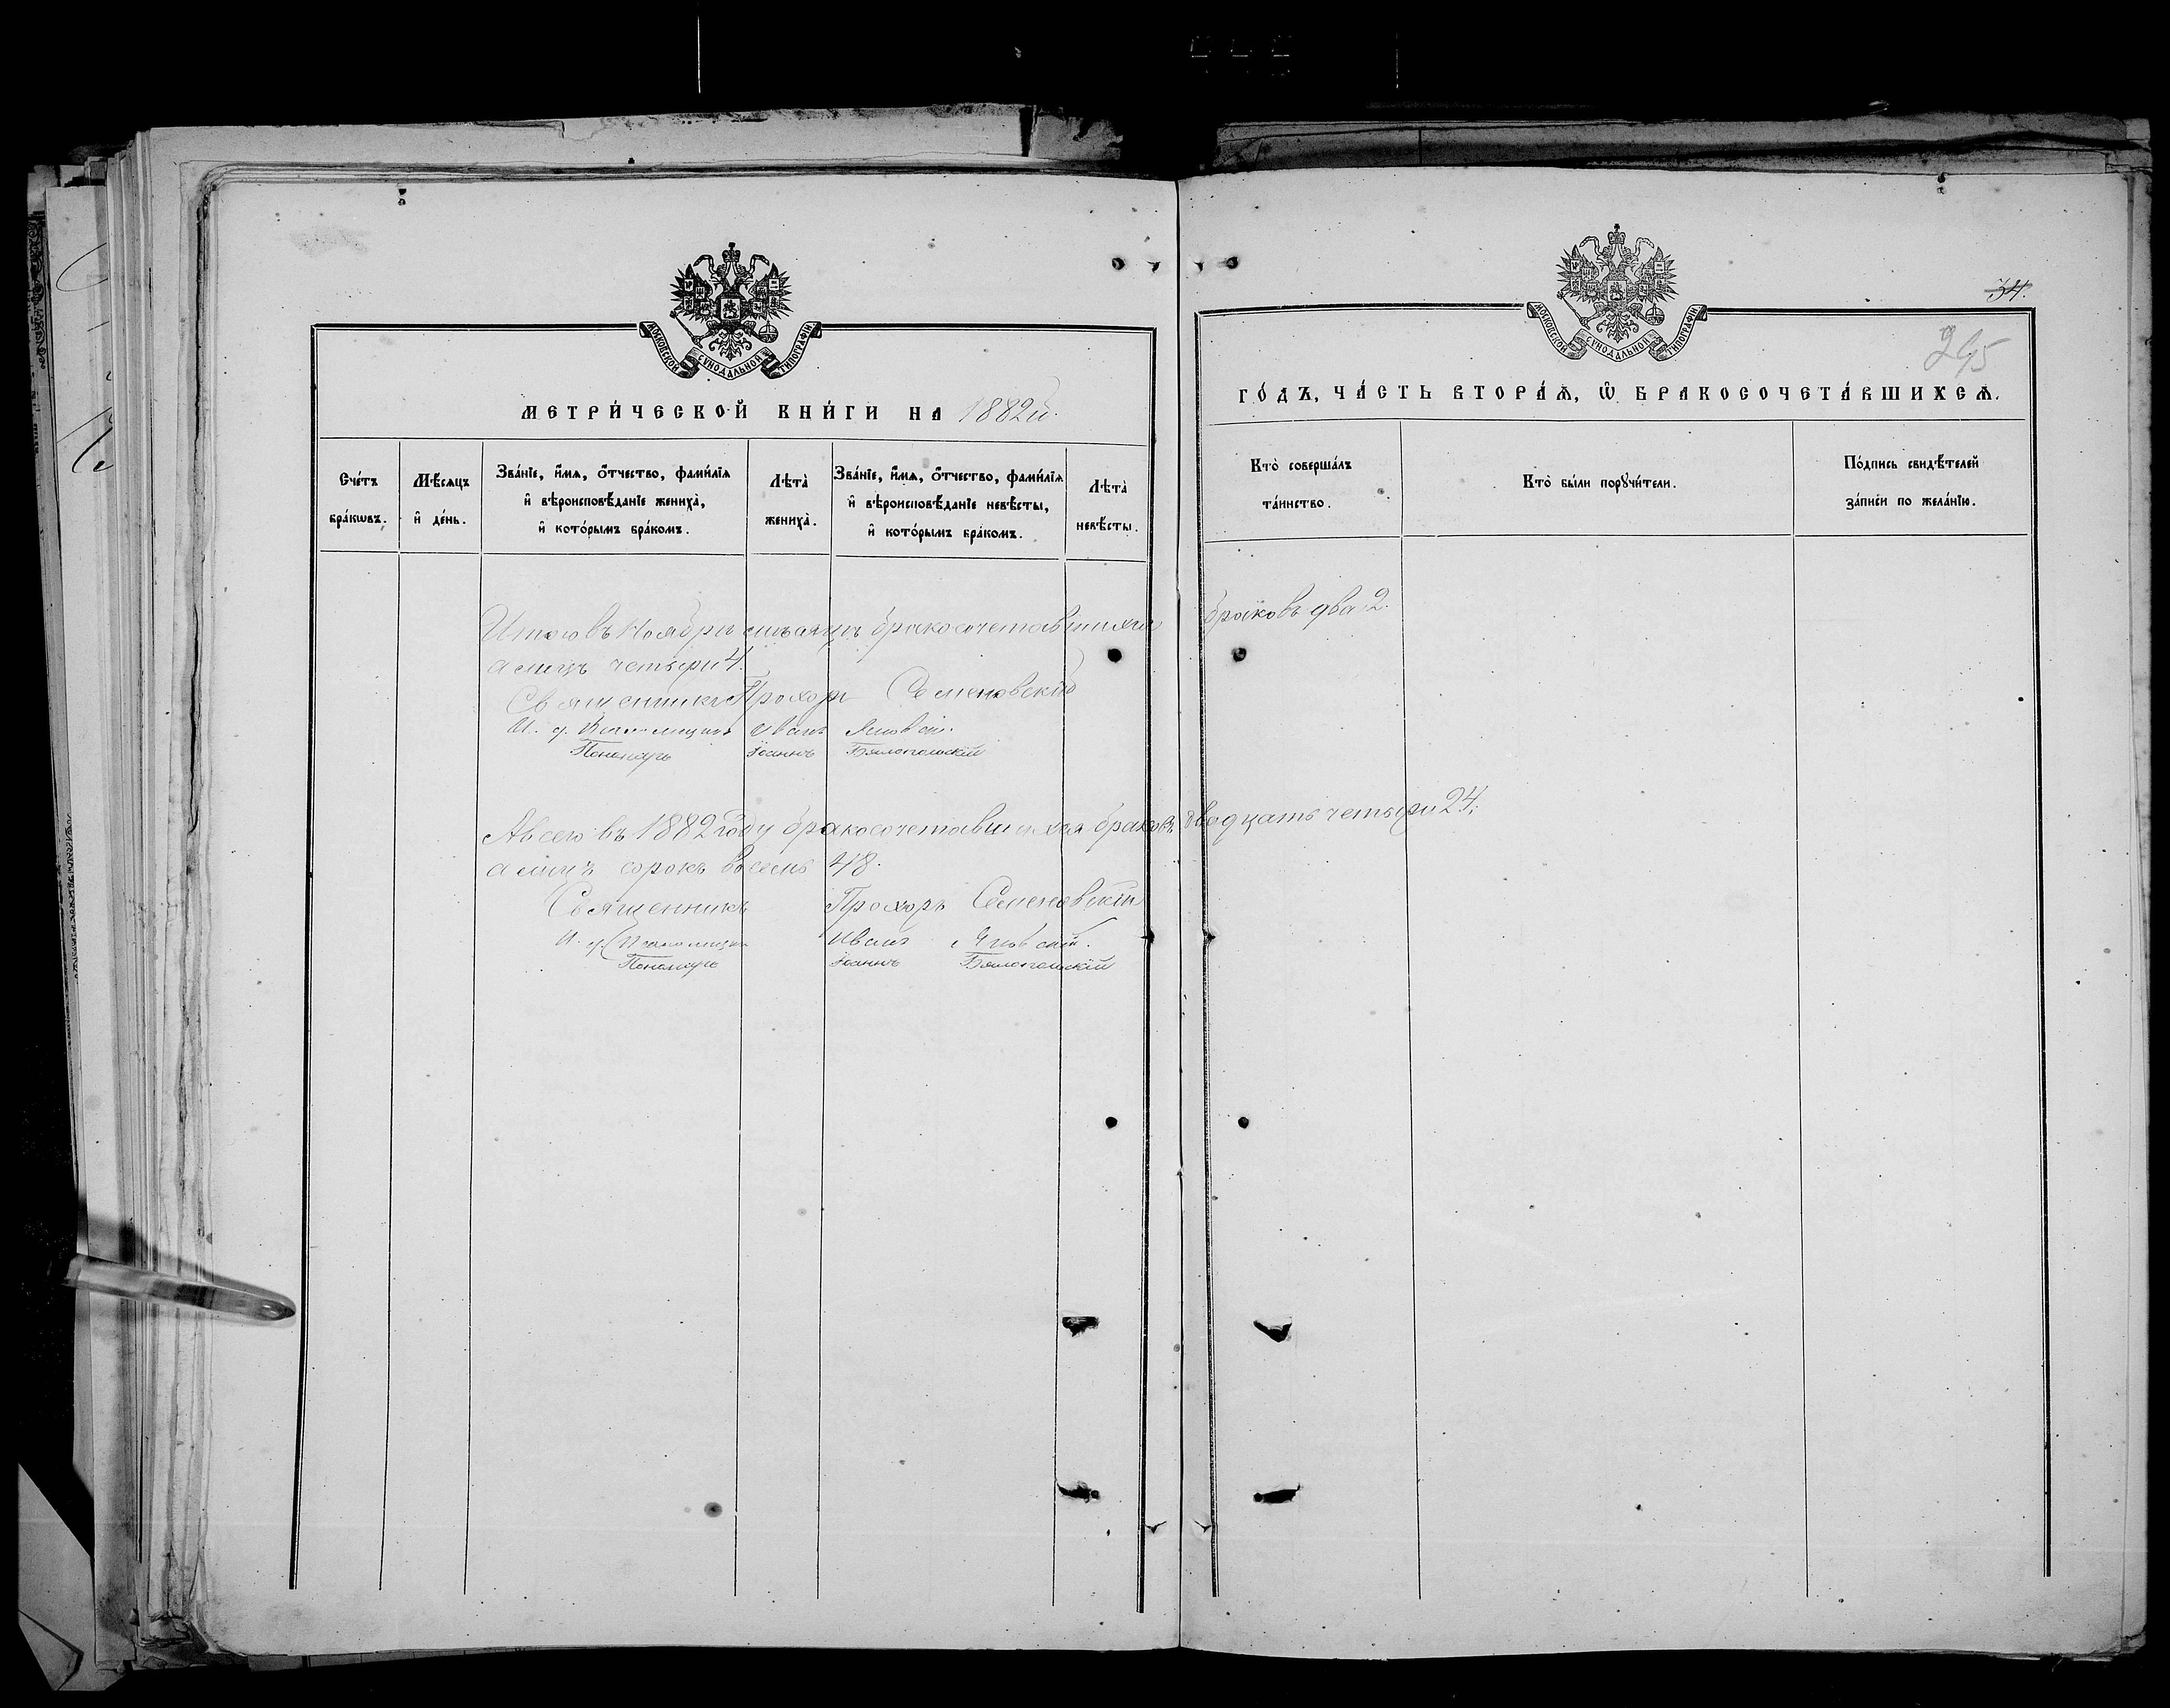 МОСКОВСКОЙ СѴНОДАЛЬНОЙ ТИПОГРАФІИ
МЕТРИ́ЧЕСКОЙ КНИ́ГИ НА 1882й.
Сче́тъ бра́кѡвъ.
Мѣ́сяцъ и҆ де́нь.
Зва́нїе, и҆́мѧ, ѻ҆́тчество, фами́лїѧ и҆ вѣроисповѣ́данїе жениха̀, и҆ кото́рымъ бра́комъ.
Лѣта̀ жениха̀.
Зва́нїе, и҆́мѧ, ѻ҆́тчество, фами́лїѧ и҆ вѣроисповѣ́данїе невѣ́сты, и҆ кото́рымъ бра́комъ.
Лѣта̀ невѣ́сты.
Итого въ Ноябрѣ мѣсяцѣ бракосочетавшихся
а лицъ четыри 4.
Священникъ Прохоръ Семеновскій
И. д. Псаломщика Иванъ Яновскій.
Пономарь Іоаннъ Бялопольскій
А всего въ 1882 году бракосочетавшихся браковъ двадцать четыри 24;
а лицъ сорокъ восемь 48.
Священникъ Прохоръ Семеновскій
И. д. Псаломщика Иванъ Яновскій.
Пономарь Іоаннъ Бялопольскій
34.
245
МОСКОВСКОЙ СѴНОДАЛЬНОЙ ТИПОГРАФІИ
ГО́ДЪ, ЧА́СТЬ ВТОРА́Ѧ, Ѽ БРАКОСОЧЕТА́ВШИХСѦ.
Кто̀ соверша́лъ та́инство.
Кто̀ бы́ли порꙋчи́тели.
По́дпись свидѣ́телей за́писи по жела́нїю.
браковъ два 2.